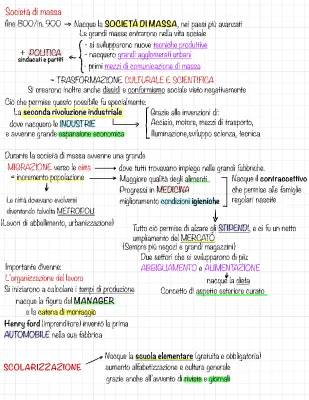 Società di massa
fine 800/in. 900 → Nacque la SOCIETÀ DI MASSA, nei paesi più avanzati
Le grandi masse entrarono nella vita sociale
+ POLITICA
sindacati e partiti
- si svilupparono nuove tecniche produttive
- nacquero grandi agglomerati urbani
- primi mezzi di comunicazione di massa
~ TRASFORMAZIONE CULTURALE E SCIENTIFICA
Si crearono inoltre anche disagi e conformismo sociale visto negativamente
Ciò che permise questo possibile fu specialmente:
La seconda rivoluzione industriale
dove nacquero le INDUSTRIE
e avvenne grande espansione economica
Grazie alle invenzioni di:
Acciaio, motore, mezzi di trasporto,
illuminazione, sviluppo scienza, tecnica
Durante la società di massa avvenne una grande
MIGRAZIONE verso le città → dove tutti trovavano impiego nelle grandi fabbriche.
= incremento popolazione → Maggiore qualità degli alimenti.
Progressi in MEDICINA
miglioramento condizioni igieniche
Nacque il contraccettivo
che permise alle famiglie
regolari nascite
Le città dovevano evolversi
diventando talvolta METROPOLI
(Lavori di abbellimento, urbanizzazione)
Tutto ciò permise di alzare gli STIPENDI, e ci fu un netto
ampliamento del MERCATO
(Sempre più negozi e grandi magazzini)
Due settori che si svilupparono di più:
ABBIGLIAMENTO e ALIMENTAZIONE
nacque la dieta
Concetto di aspetto esteriore curato
Importante divenne:
L'organizzazione del lavoro
Si iniziarono a calcolare i tempi di produzione
nacque la figura del MANAGER
e la catena di montaggio
Henry ford (imprenditore) inventò la prima
AUTOMOBILE nella sua fabbrica
SCOLARIZZAZIONE
Nacque la scuola elementare (gratuita e obbligatoria)
aumento alfabetizzazione e cultura generale
grazie anche all'avvento di riviste e giornali